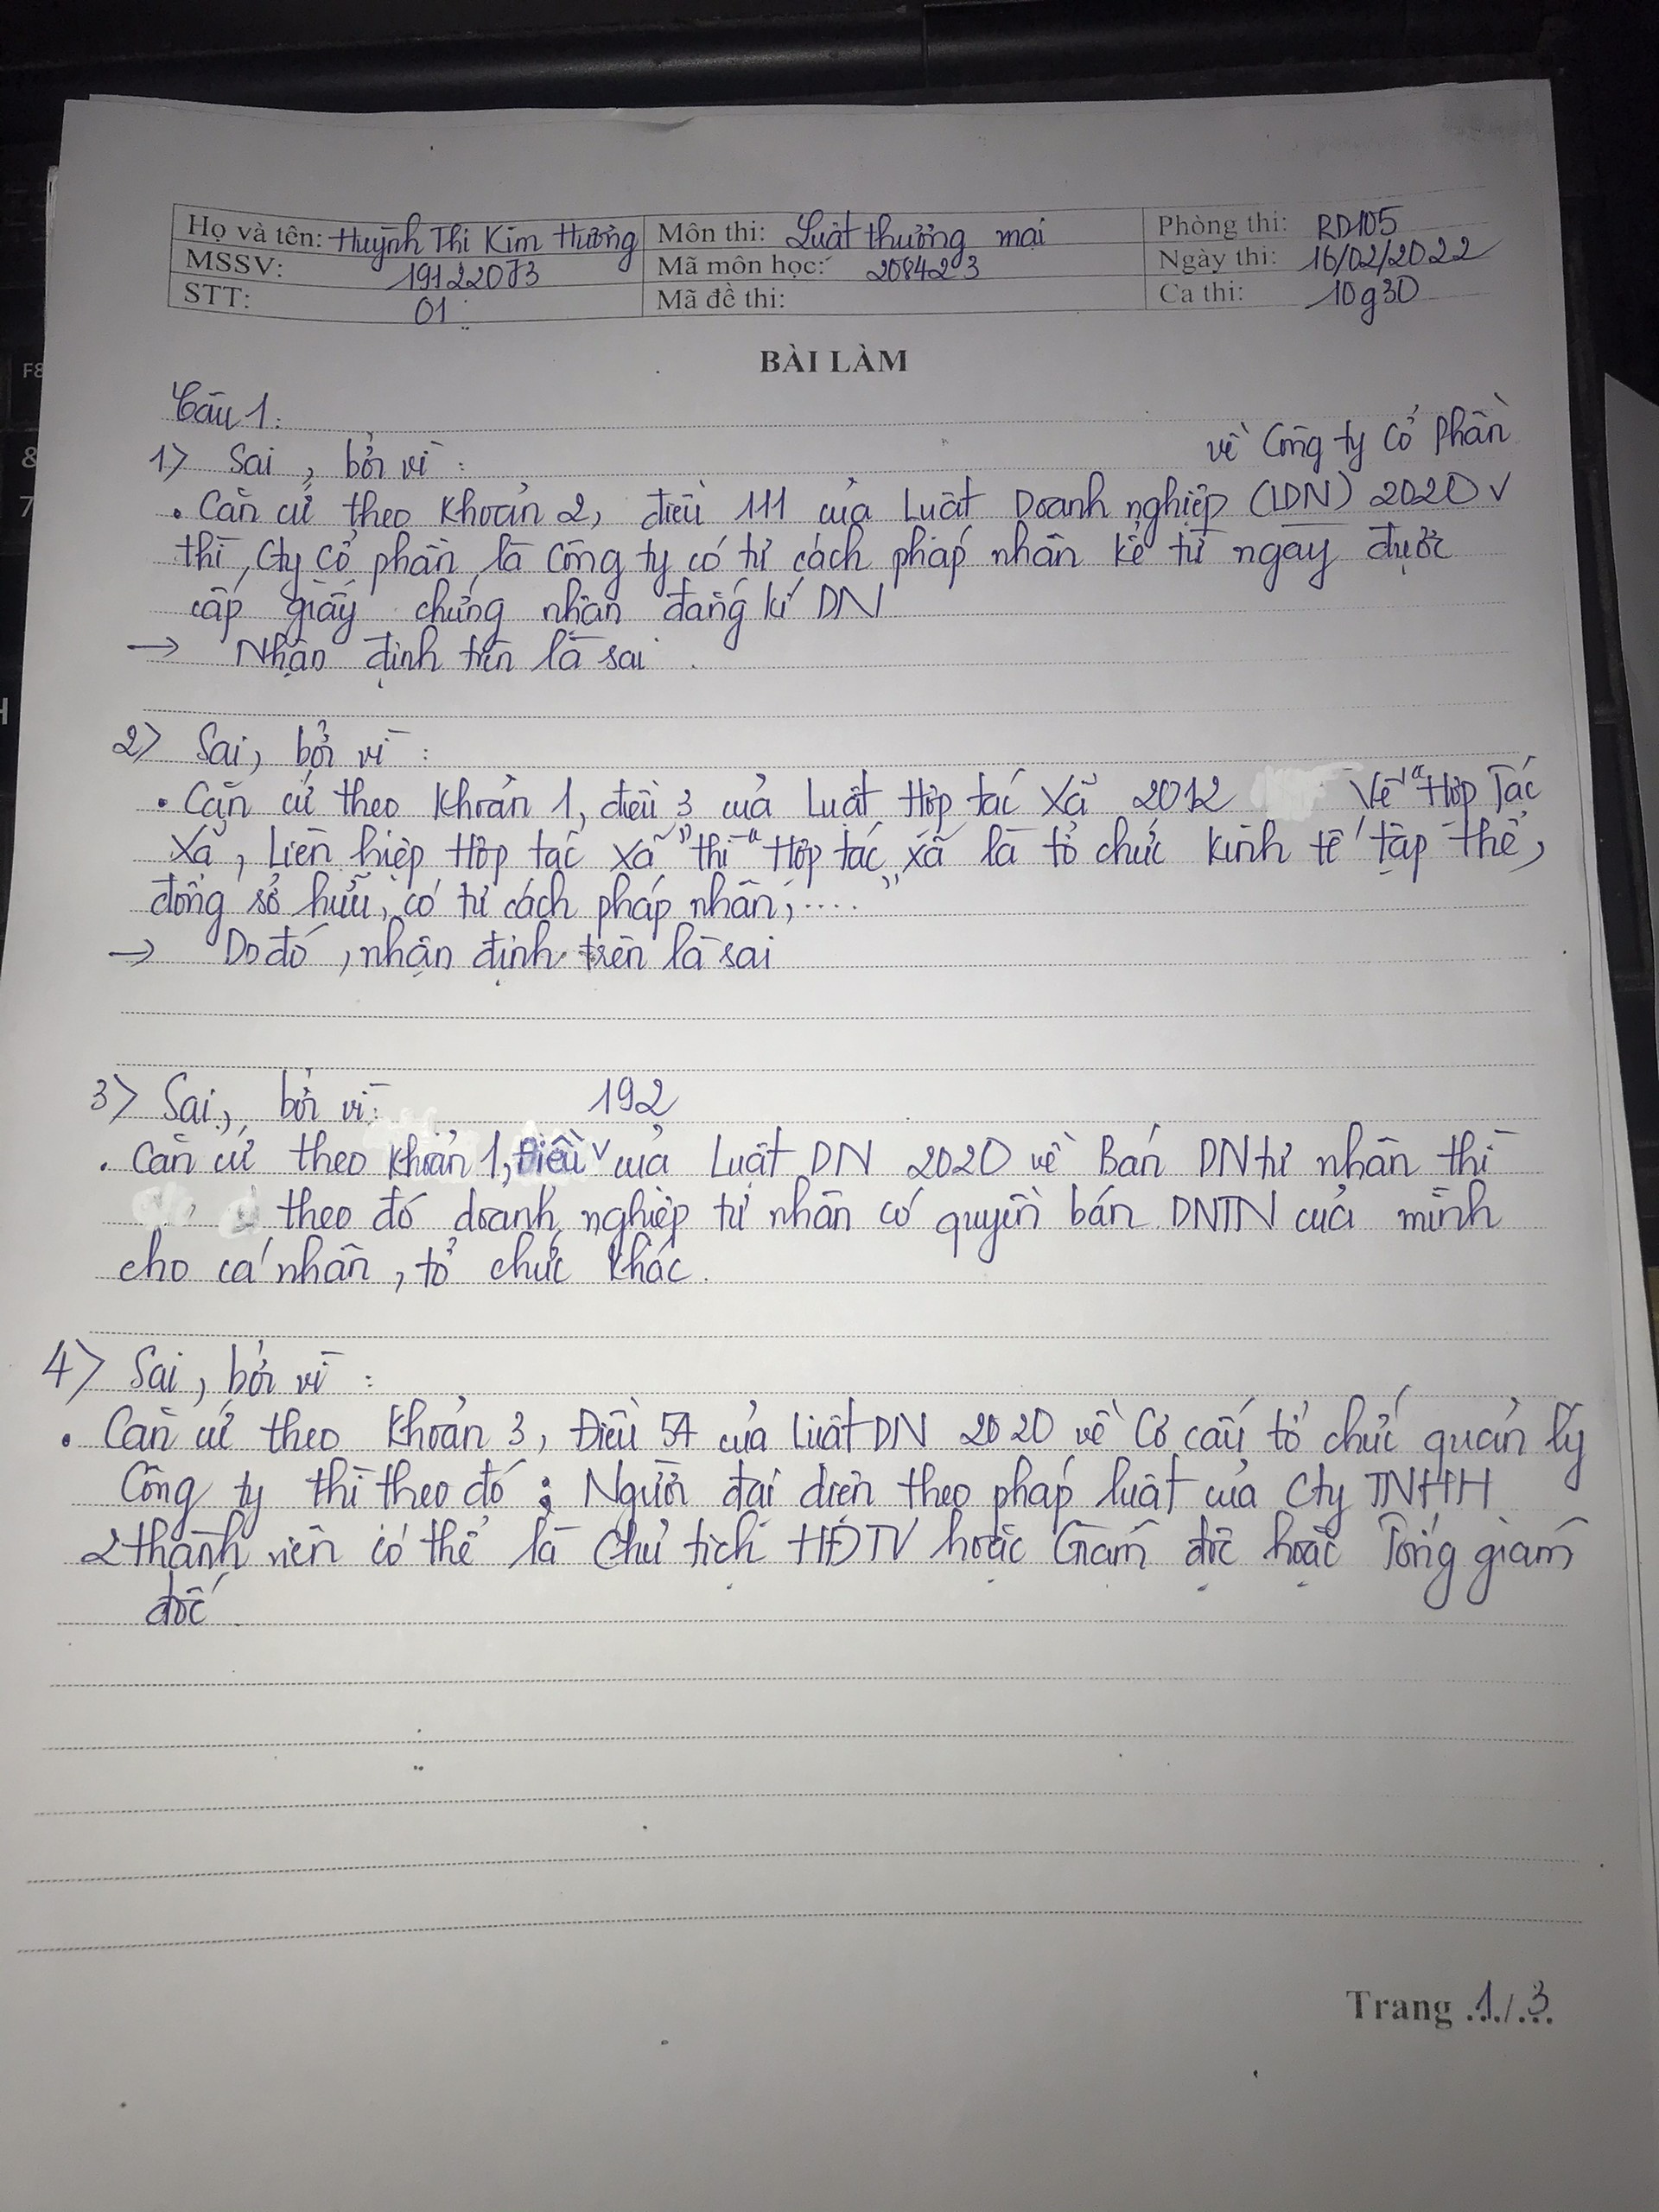 Họ và tên: Huỳnh Thị Kim Hương Môn thi: Luật thương mại Phòng thi: RD105
MSSV: 19122073 Mã môn học: 208423 Ngày thi: 16/02/2022
STT: 01 Mã đề thi: Ca thi: 10g30
BÀI LÀM
Câu 1:
về Công ty Cổ phần
1> Sai, bởi vì:
• Căn cứ theo Khoản 2, điều 111 của Luật Doanh nghiệp (LDN) 2020 v
thì, Cty cổ phần là công ty có tư cách pháp nhân kể từ ngày được
cấp giấy chứng nhận đăng kí DN
→ Nhận định trên là sai.
2> Sai, bởi vì:
• Căn cứ theo Khoản 1, điều 3 của Luật Hợp tác Xã 2012 Về "Hợp Tác
Xã, Liên hiệp Hợp tác Xã" thì "Hợp tác xã là tổ chức kinh tế tập thể,
đồng sở hữu, có tư cách pháp nhân,...."
→ Do đó, nhận định trên là sai
3> Sai, bởi vì: 192
• Căn cứ theo Khoản 1, Điều v của Luật DN 2020 về Bán DN tư nhân thì
theo đó doanh nghiệp tư nhân có quyền bán DNTN của mình
cho cá nhân, tổ chức khác.
4> Sai, bởi vì:
• Căn cứ theo Khoản 3, Điều 54 của Luật DN 2020 về Cơ cấu tổ chức quản lý
Công ty thì theo đó: Người đại diện theo pháp luật của Cty TNHH
2 thành viên có thể là Chủ tịch HĐTV hoặc Giám đốc hoặc Tổng giám
đốc.
Trang 1/3
F8
8
7
H